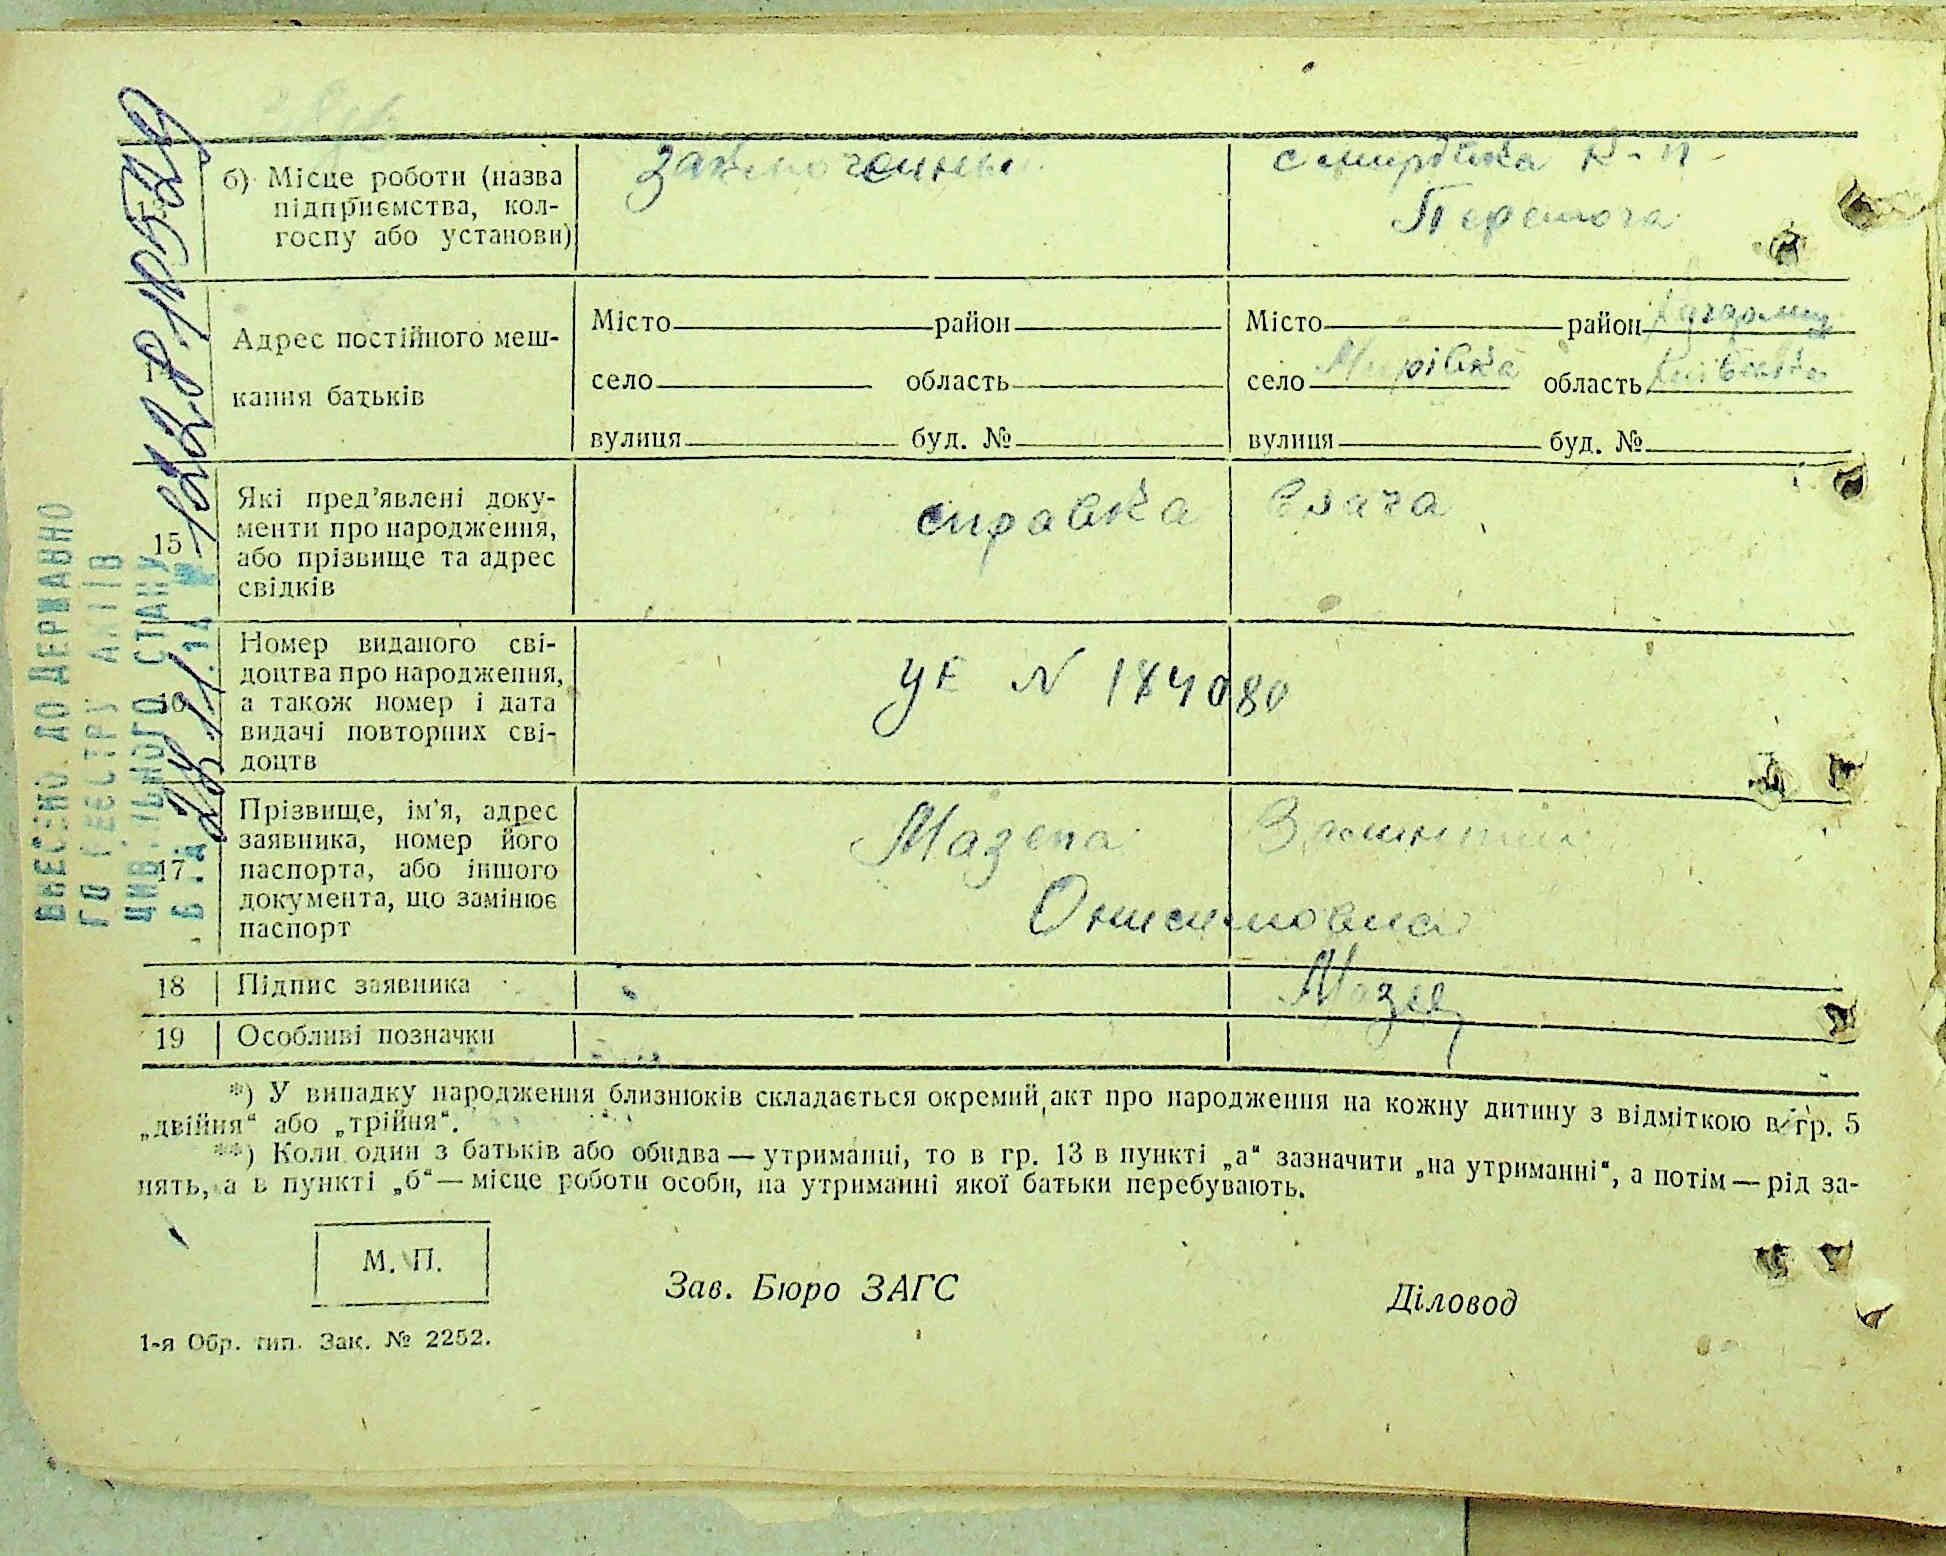 б) Місце роботи (назва
підприємства, кол-
госпу або установи)
к-п
Перемога
Адрес постійного меш-
кання батьків
Місто район
село область
вулиця буд. №
Місто район
село Мирівка область Київська
вулиця буд. №
15
Які пред'явлені доку-
менти про народження,
або прізвище та адрес
свідків
справка врача
16
Номер виданого сві-
доцтва про народження,
а також номер і дата
видачі повторних сві-
доцтв
УЕ N 184080
17
Прізвище, ім'я, адрес
заявника, номер його
паспорта, або іншого
документа, що замінює
паспорт
Мазепа
Онисимовна
18 Підпис заявника
19 Особливі позначки
*) У випадку народження близнюків складається окремий акт про народження на кожну дитину з відміткою в гр. 5
„двійня“ або „трійня“.
**) Коли один з батьків або обидва — утриманці, то в гр. 13 в пункті „а“ зазначити „на утриманні“, а потім — рід за-
нять, а в пункті „б“ — місце роботи особи, на утриманні якої батьки перебувають.
М. П.
Зав. Бюро ЗАГС
Діловод
1-я Обр. тип. Зак. № 2252.
ВНЕСЕНО ДО ДЕРЖАВНО
ГО РЕЄСТРУ АКТІВ
ЦИВІЛЬНОГО СТАНУ